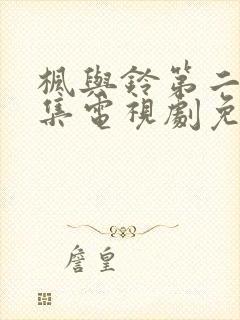 楓與鈴第二
集電視劇免
詹皇